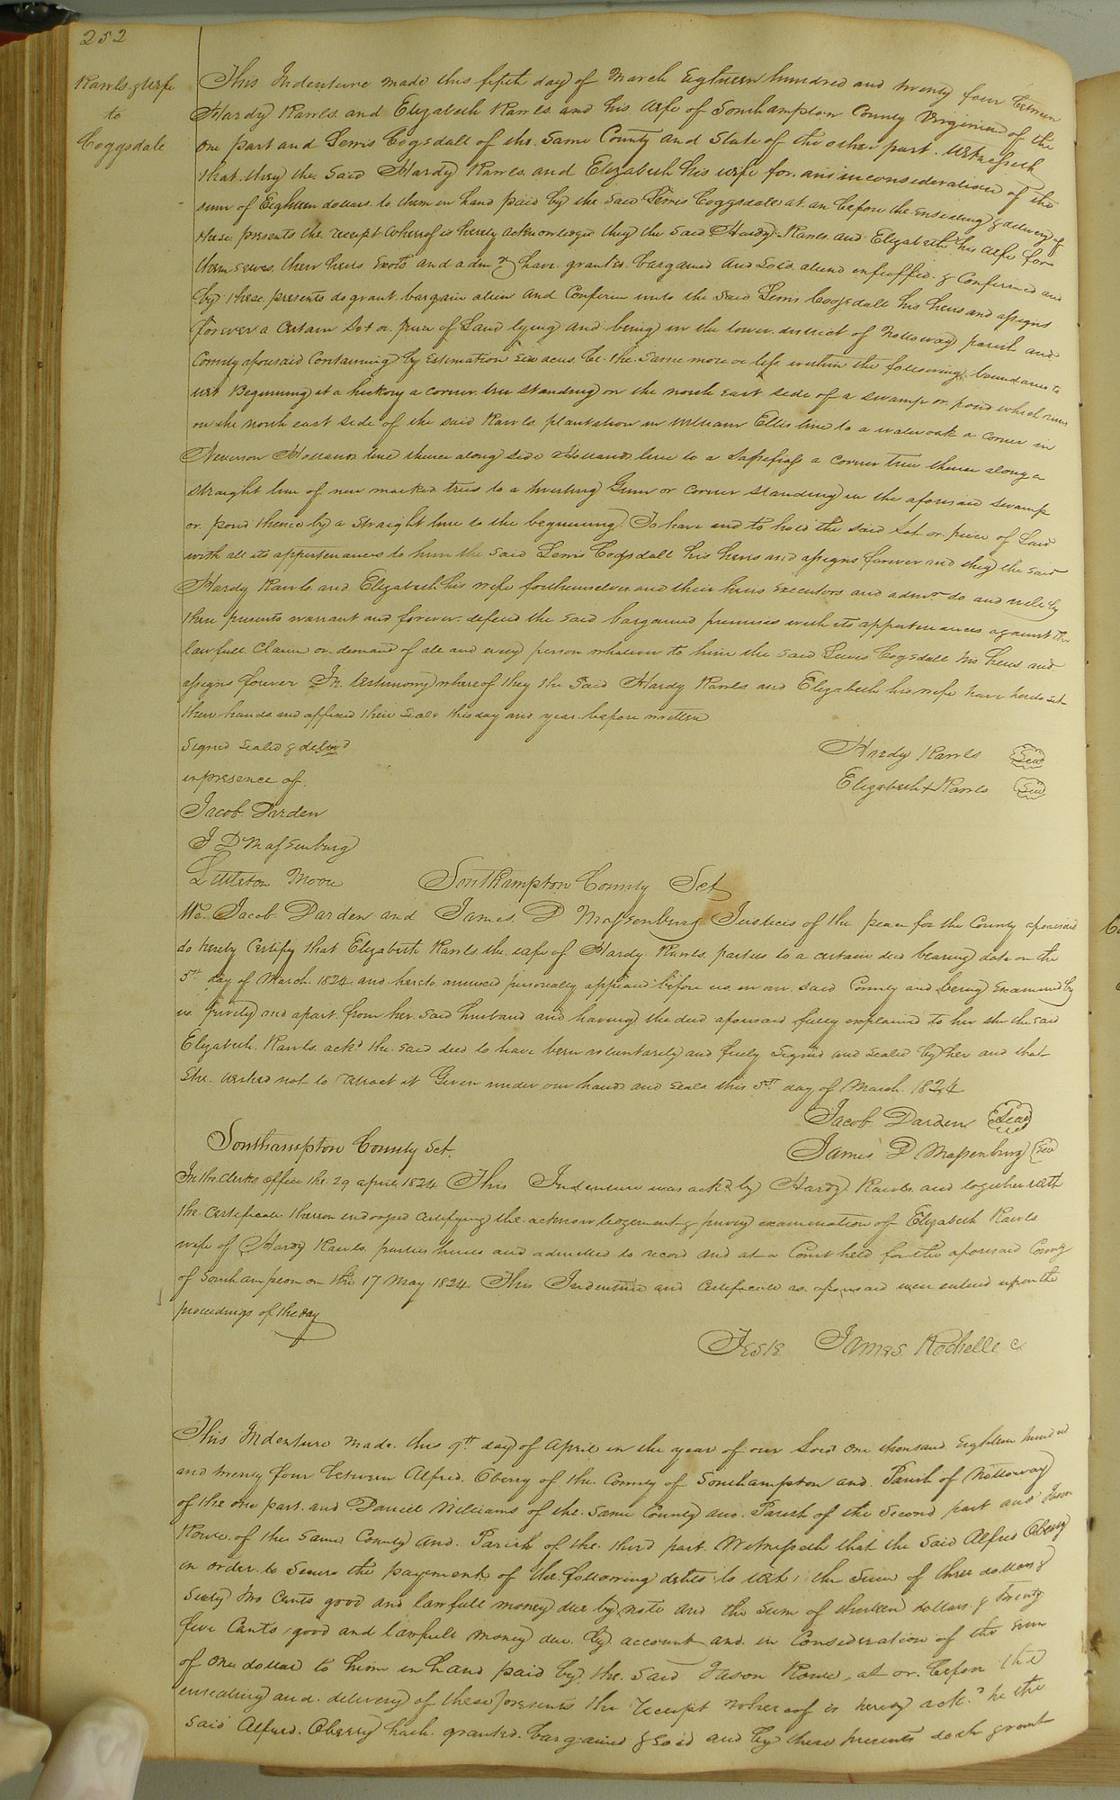 252
Rawls & Wife
to
Coggsdale
This Indenture made this fifth day of March Eighteen hundred and twenty four between
Hardy Rawls and Elizabeth Rawls and his wife of Southampton County Virginia of the
one part and Lewis Cogsdall of the Same County and State of the other part. Witnesseth
that they the Said Hardy Rawls and Elizabeth his wife for and inconsideration of the
sum of Eighteen dollars to them in hand paid by the said Lewis Coggsdale at an before the ensealing & delivery of
these presents the receipt whereof is hereby acknowledged they the Said Hardy Rawls and Elizabeth his wife for
themselves their heirs Exots and adm have granted bargained and Sold aliend enfeoffed & Conferred and
by these presents do grant bargain alien and Conferm unto the Said Lewis Cogsdall his heirs and assigns
forever a Certain Lot or piece of Land lying and being in the lower district of Nottoway parish and
County aforesaid Containing by Estimation Six acres be the Same more or less within the following boundaries to
wit Beginning at a hickory a corner tree standing on the north East side of a swamp or pond which runs
on the north east side of the said Rawls plantation in William Ellis line to a water oak a corner in
Neverson Hollands line thence along side Hollands line to a Sassafrass a corner tree thence along a
straight line of new marked trees to a Gum or corner standing in the aforesaid swamp
or pond thence by a straight line to the beginning To have and to hold the said Lot or piece of Land
with all its appurtenances to him the Said Lewis Cogsdall his heirs and assigns forever and they the said
Hardy Rawls and Elizabeth his wife forthemselves and their heirs executors and admrs do and will by
these presents warrant and forever defend the said bargained premises with its appurtenances against the
lawfull Claim or demand of all and every person whatever to him the said Lewis Cogsdall his heirs and
assigns forever In testimony whereof they the Said Hardy Rawls and Elizabeth his wife have hereto set
their hands and affixed their seals this day and year before written
Signed Sealed & delivd
in presence of
Hardy Rawls Seal
Elizabeth + Rawls Seal
Jacob Darden
J D Massenburg
Littleton Moore
Southampton County Sct
We Jacob Darden and James D Massenburg Justices of the peace for the County aforesaid
do hereby Certify that Elizabeth Rawls the wife of Hardy Rawls parties to a certain deed bearing date on the
5th day of March 1824 and hereto annexed personally appeared before us in our said County and being Examined by
us privily and apart from her said husband and having the deed aforesaid fully explained to her she the said
Elizabeth Rawls ackd the said deed to have been voluntarily and freely Signed and sealed by her and that
She wished not to retract it Given under our hands and seals this 5th day of March 1824
Jacob Darden Seal
James D Massenburg Seal
Southampton County Sct.
In the Clerks office the 29 april 1824 This Indenture was ackd by Hardy Rawls and together with
the Certificate thereon endorsed certifying the acknowledgement & privy examination of Elizabeth Rawls
wife of Hardy Rawls parties hereto and admitted to record and at a Court held for the aforesaid County
of Southampton on the 17 May 1824 This Indenture and Certificate as aforesaid were entered upon the
proceedings of the day
Teste James Rochelle c
This Indenture made this 9th day of April in the year of our Lord One thousand Eighteen hundred
and twenty four between Alfred Oberry of the County of Southampton and Parish of Nottoway
of the one part and Daniel Williams of the Same County and Parish of the Second part and Jason
Rowe of the Same County and Parish of the third part Witnesseth that the Said Alfred Oberry
in order to Secure the payment of the following debts to wit; the Sum of three dollars &
Sixty two Cents good and lawfull money due by note and the Sum of thirteen dollars & twenty
five Cents good and lawfull money due by account and in Consideration of the Sum
of One dollar to him in hand paid by the Said Jason Rowe, at or before the
ensealing and delivery of these presents the receipt whereof is hereby ackd he the
Said Alfred Oberry hath granted bargained & sold and by these presents doth grant